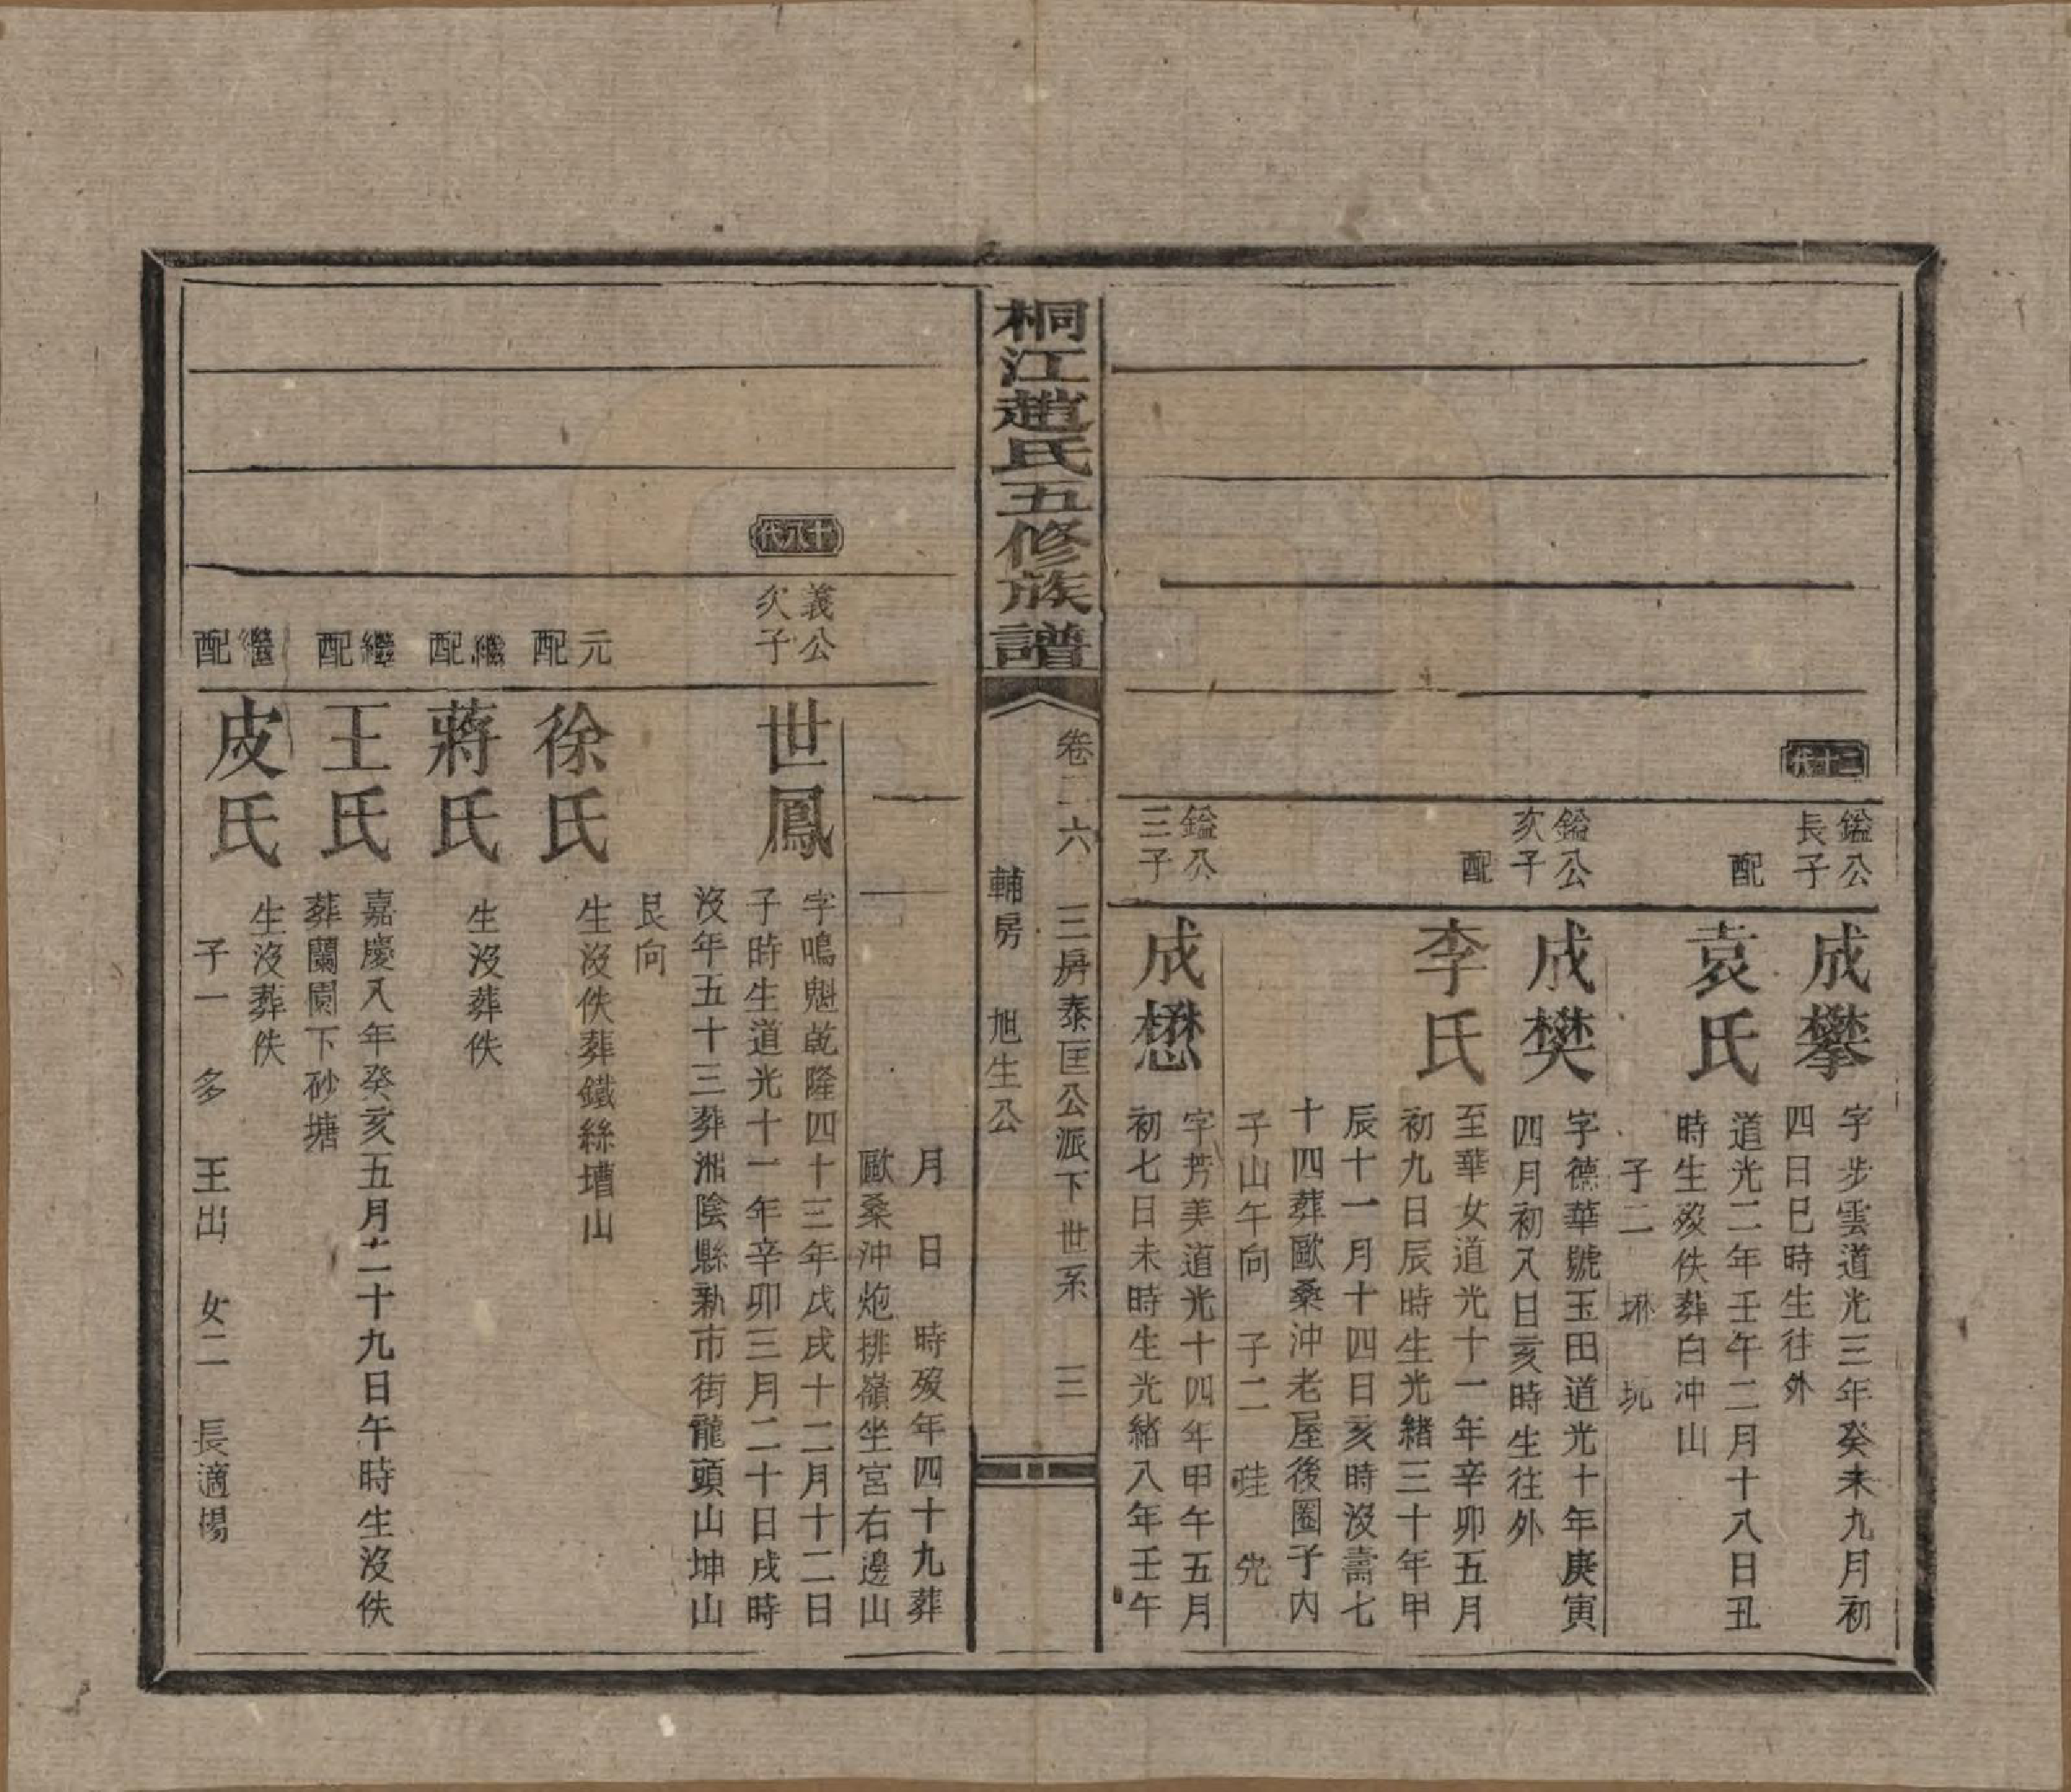 二十代
鎰公長子
成攀
字步雲道光三年癸未九月初
四日巳時生往外
配
袁氏
道光二年壬午二月十八日丑
時生歿佚葬白冲山
子二 坑
鎰公次子
成樊
字德華號玉田道光十年庚寅
四月初八日亥時生往外
配
李氏
至華女道光十一年辛卯五月
初九日辰時生光緒三十年甲
辰十一月十四日亥時沒壽七
十四葬歐桑沖老屋後圈子内
子山午向 子二
鎰公三子
成懋
字芳美道光十四年甲午五月
初七日未時生光緒八年壬午
桐江趙氏五修族譜
卷二六 三房泰匡公派下世系 三
輔房 旭生公
月 日 時歿年四十九葬
歐桑沖炮排嶺坐宮右邊山
十八代
義公次子
世鳳
字鳴魁乾隆四十三年戊戌十二月十二日
子時生道光十一年辛卯三月二十日戌時
沒年五十三葬湘陰縣新市街龍頭山坤山
艮向
元配
徐氏
生沒佚葬鐵絲塘山
繼配
蔣氏
生沒葬佚
繼配
王氏
嘉慶八年癸亥五月二十九日午時生沒佚
葬蘭園下砂塘
繼配
皮氏
生沒葬佚
子一 多 王出 女二 長適楊